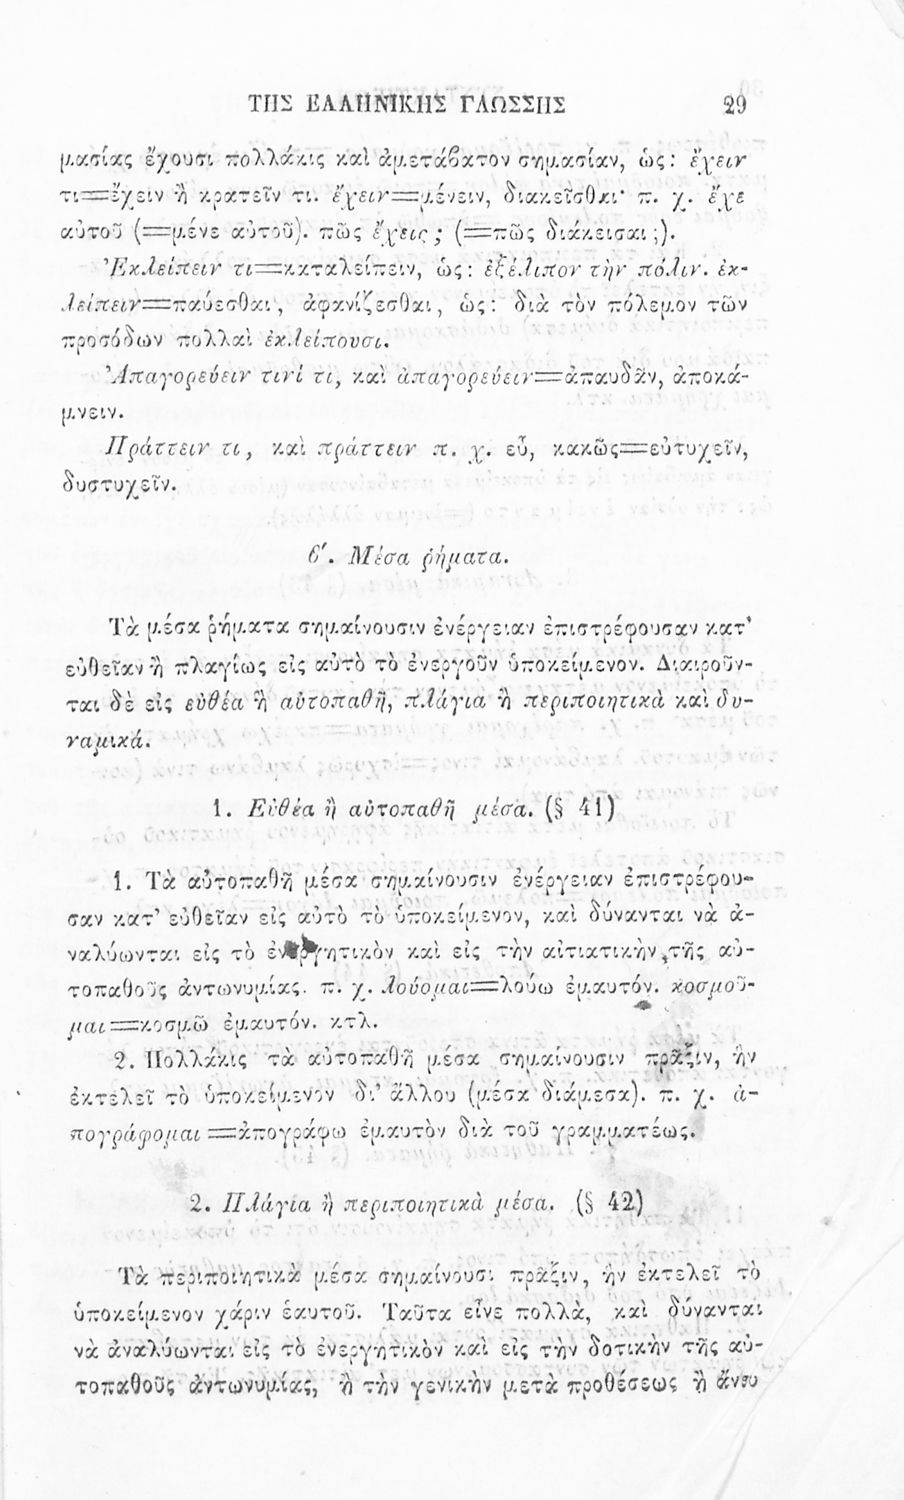 ΤΗΣ ΕΛΛΗΝΙΚΗΣ ΓΛΩΣΣΗΣ 29
μασίας ἔχουσι πολλάκις καὶ ἀμετάβατον σημασίαν, ὡς: ἔχειν
τι=ἔχειν ἢ κρατεῖν τι. ἔχειν=μένειν, διακεῖσθαι· π. χ. ἔχε
αὐτοῦ (=μένε αὐτοῦ). πῶς ἔχεις; (=πῶς διάκεισαι;).
Ἐκλείπειν τι=καταλείπειν, ὡς: ἐξέλιπον τὴν πόλιν. ἐκ-
λείπειν=παύεσθαι, ἀφανίζεσθαι, ὡς: διὰ τὸν πόλεμον τῶν
προσόδων πολλαὶ ἐκλείπουσι.
Ἀπαγορεύειν τινί τι, καὶ ἀπαγορεύειν=ἀπαυδᾶν, ἀποκά-
μνειν.
Πράττειν τι, καὶ πράττειν π. χ. εὖ, κακῶς=εὐτυχεῖν,
δυστυχεῖν.
β′. Μέσα ῥήματα.
Τὰ μέσα ῥήματα σημαίνουσιν ἐνέργειαν ἐπιστρέφουσαν κατ’
εὐθεῖαν ἢ πλαγίως εἰς αὐτὸ τὸ ἐνεργοῦν ὑποκείμενον. Διαιροῦν-
ται δὲ εἰς εὐθέα ἢ αὐτοπαθῆ, πλάγια ἢ περιποιητικὰ καὶ δυ-
ναμικά.
1. Εὐθέα ἢ αὐτοπαθῆ μέσα. (§ 41)
1. Τὰ αὐτοπαθῆ μέσα σημαίνουσιν ἐνέργειαν ἐπιστρέφου-
σαν κατ’ εὐθεῖαν εἰς αὐτὸ τὸ ὑποκείμενον, καὶ δύνανται νὰ ἀ-
ναλύωνται εἰς τὸ ἐνεργητικὸν καὶ εἰς τὴν αἰτιατικὴν τῆς αὐ-
τοπαθοῦς ἀντωνυμίας. π. χ. λούομαι=λούω ἐμαυτόν. κοσμοῦ-
μαι=κοσμῶ ἐμαυτόν. κτλ.
2. Πολλάκις τὰ αὐτοπαθῆ μέσα σημαίνουσιν πρᾶξιν, ἣν
ἐκτελεῖ τὸ ὑποκείμενον δι’ ἄλλου (μέσα διάμεσα). π. χ. ἀ-
πογράφομαι=ἀπογράφω ἐμαυτὸν διὰ τοῦ γραμματέως.
2. Πλάγια ἢ περιποιητικὰ μέσα. (§ 42)
Τὰ περιποιητικὰ μέσα σημαίνουσι πρᾶξιν, ἣν ἐκτελεῖ τὸ
ὑποκείμενον χάριν ἑαυτοῦ. Ταῦτα εἶνε πολλὰ, καὶ δύνανται
νὰ ἀναλύωνται εἰς τὸ ἐνεργητικὸν καὶ εἰς τὴν δοτικὴν τῆς αὐ-
τοπαθοῦς ἀντωνυμίας, ἢ τὴν γενικὴν μετὰ προθέσεως ἢ ἄνευ